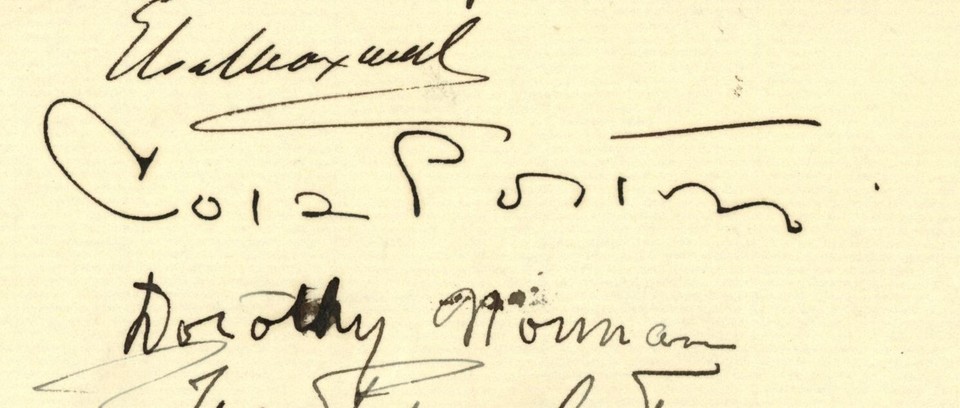 Elsa Maxwell
Cole Porter
Dorothy Norman